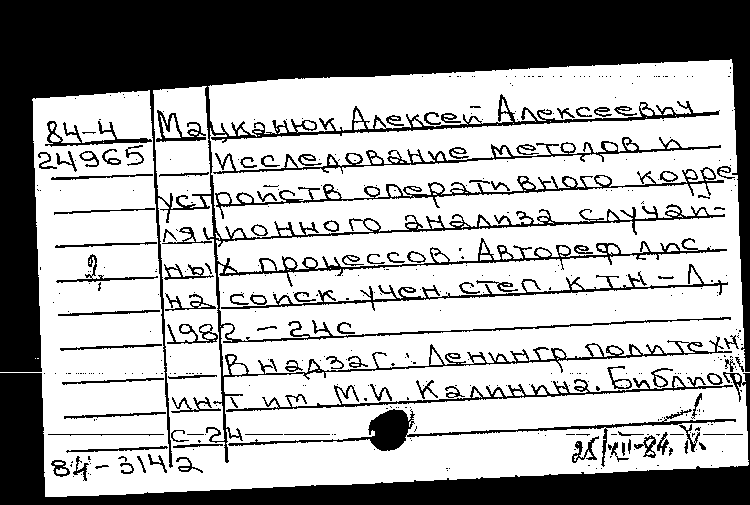 84-4 Мацканюк, Алексей Алексеевич
24965 Исследование методов и
устройств оперативного корре-
ляционного анализа случай-
2, ных процессов: Автореф. дис.
на соиск. учен. степ. к.т.н. - Л.,
1982. - 24с
В надзаг.: Ленингр. политехн.
ин-т им. М.И. Калинина. Библиогр.
с. 24.
84-3142
25/XII-84.